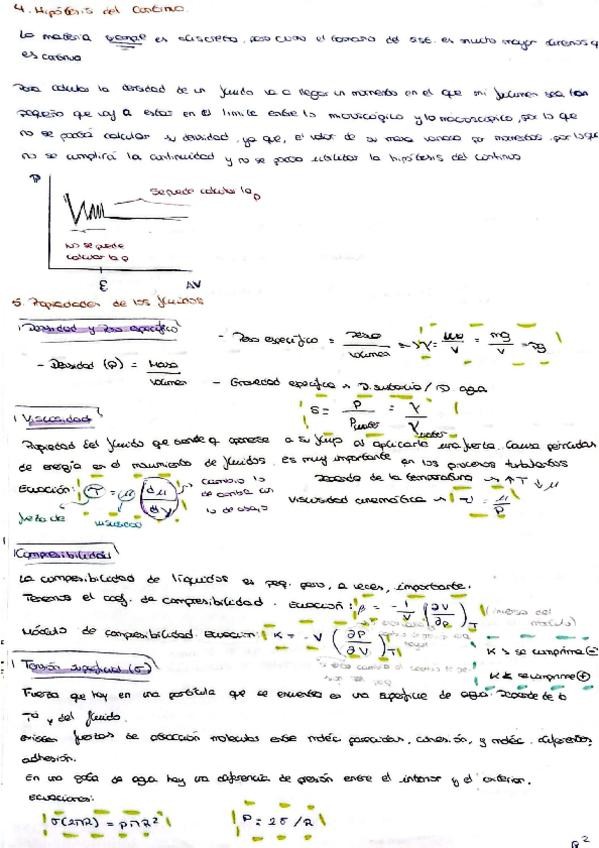 4. Hipótesis del Continuo.
La materia siempre es discreta, pero cuando el tamaño del sist. es mucho mayor diremos q
es continuo
Para calcular la densidad de un fluido va a llegar un momento en el que mi volumen sea tan
pequeño que voy a estar en el límite entre lo microscópico y lo macroscópico, por lo que
no se podrá calcular su densidad, ya que, el valor de su masa variará por momentos, por lo que
no se cumplirá la continuidad y no se podrá utilizar la hipótesis del continuo
ρ
Se puede calcular la ρ
No se puede
calcular la ρ
ε ΔV
5. Propiedades de los fluidos
Densidad y Peso específico
- Peso específico = Peso / Volumen => γ = W / V = mg / V = ρg
- Densidad (ρ) = Masa / Volumen - Gravedad específica → D. sustancia / D agua
S = ρ / ρwater = γ / γwater
Viscosidad
Propiedad del fluido que tiende a oponerse a su flujo al aplicarle una fuerza. Causa pérdidas
de energía en el movimiento de fluidos. Es muy importante en los procesos turbulentos
Depende de la temperatura → ↑T ↓μ
Ecuación: τ = μ (du / dy) → cambio
fuerza de viscosidad
viscosidad cinemática → ν = μ / ρ
Compresibilidad
La compresibilidad de líquidos es peq. pero, a veces, importante.
Tenemos el coef. de compresibilidad. Ecuación: β = - 1/V (∂V / ∂P)T (inversa del módulo)
Módulo de compresibilidad. Ecuación: K = - V (∂P / ∂V)T
K > se comprime ⊖
K < se comprime ⊕
Tensión superficial (σ)
Fuerza que hay en una partícula que se encuentra en una superficie de agua. Depende de la
Tª y del fluido.
Existen fuerzas de atracción molecular entre moléc. parecidas, cohesión, y moléc. diferentes,
adhesión.
En una gota de agua hay una diferencia de presión entre el interior y el exterior.
Ecuaciones:
σ(2πR) = pπR² P = 2σ / R
R²